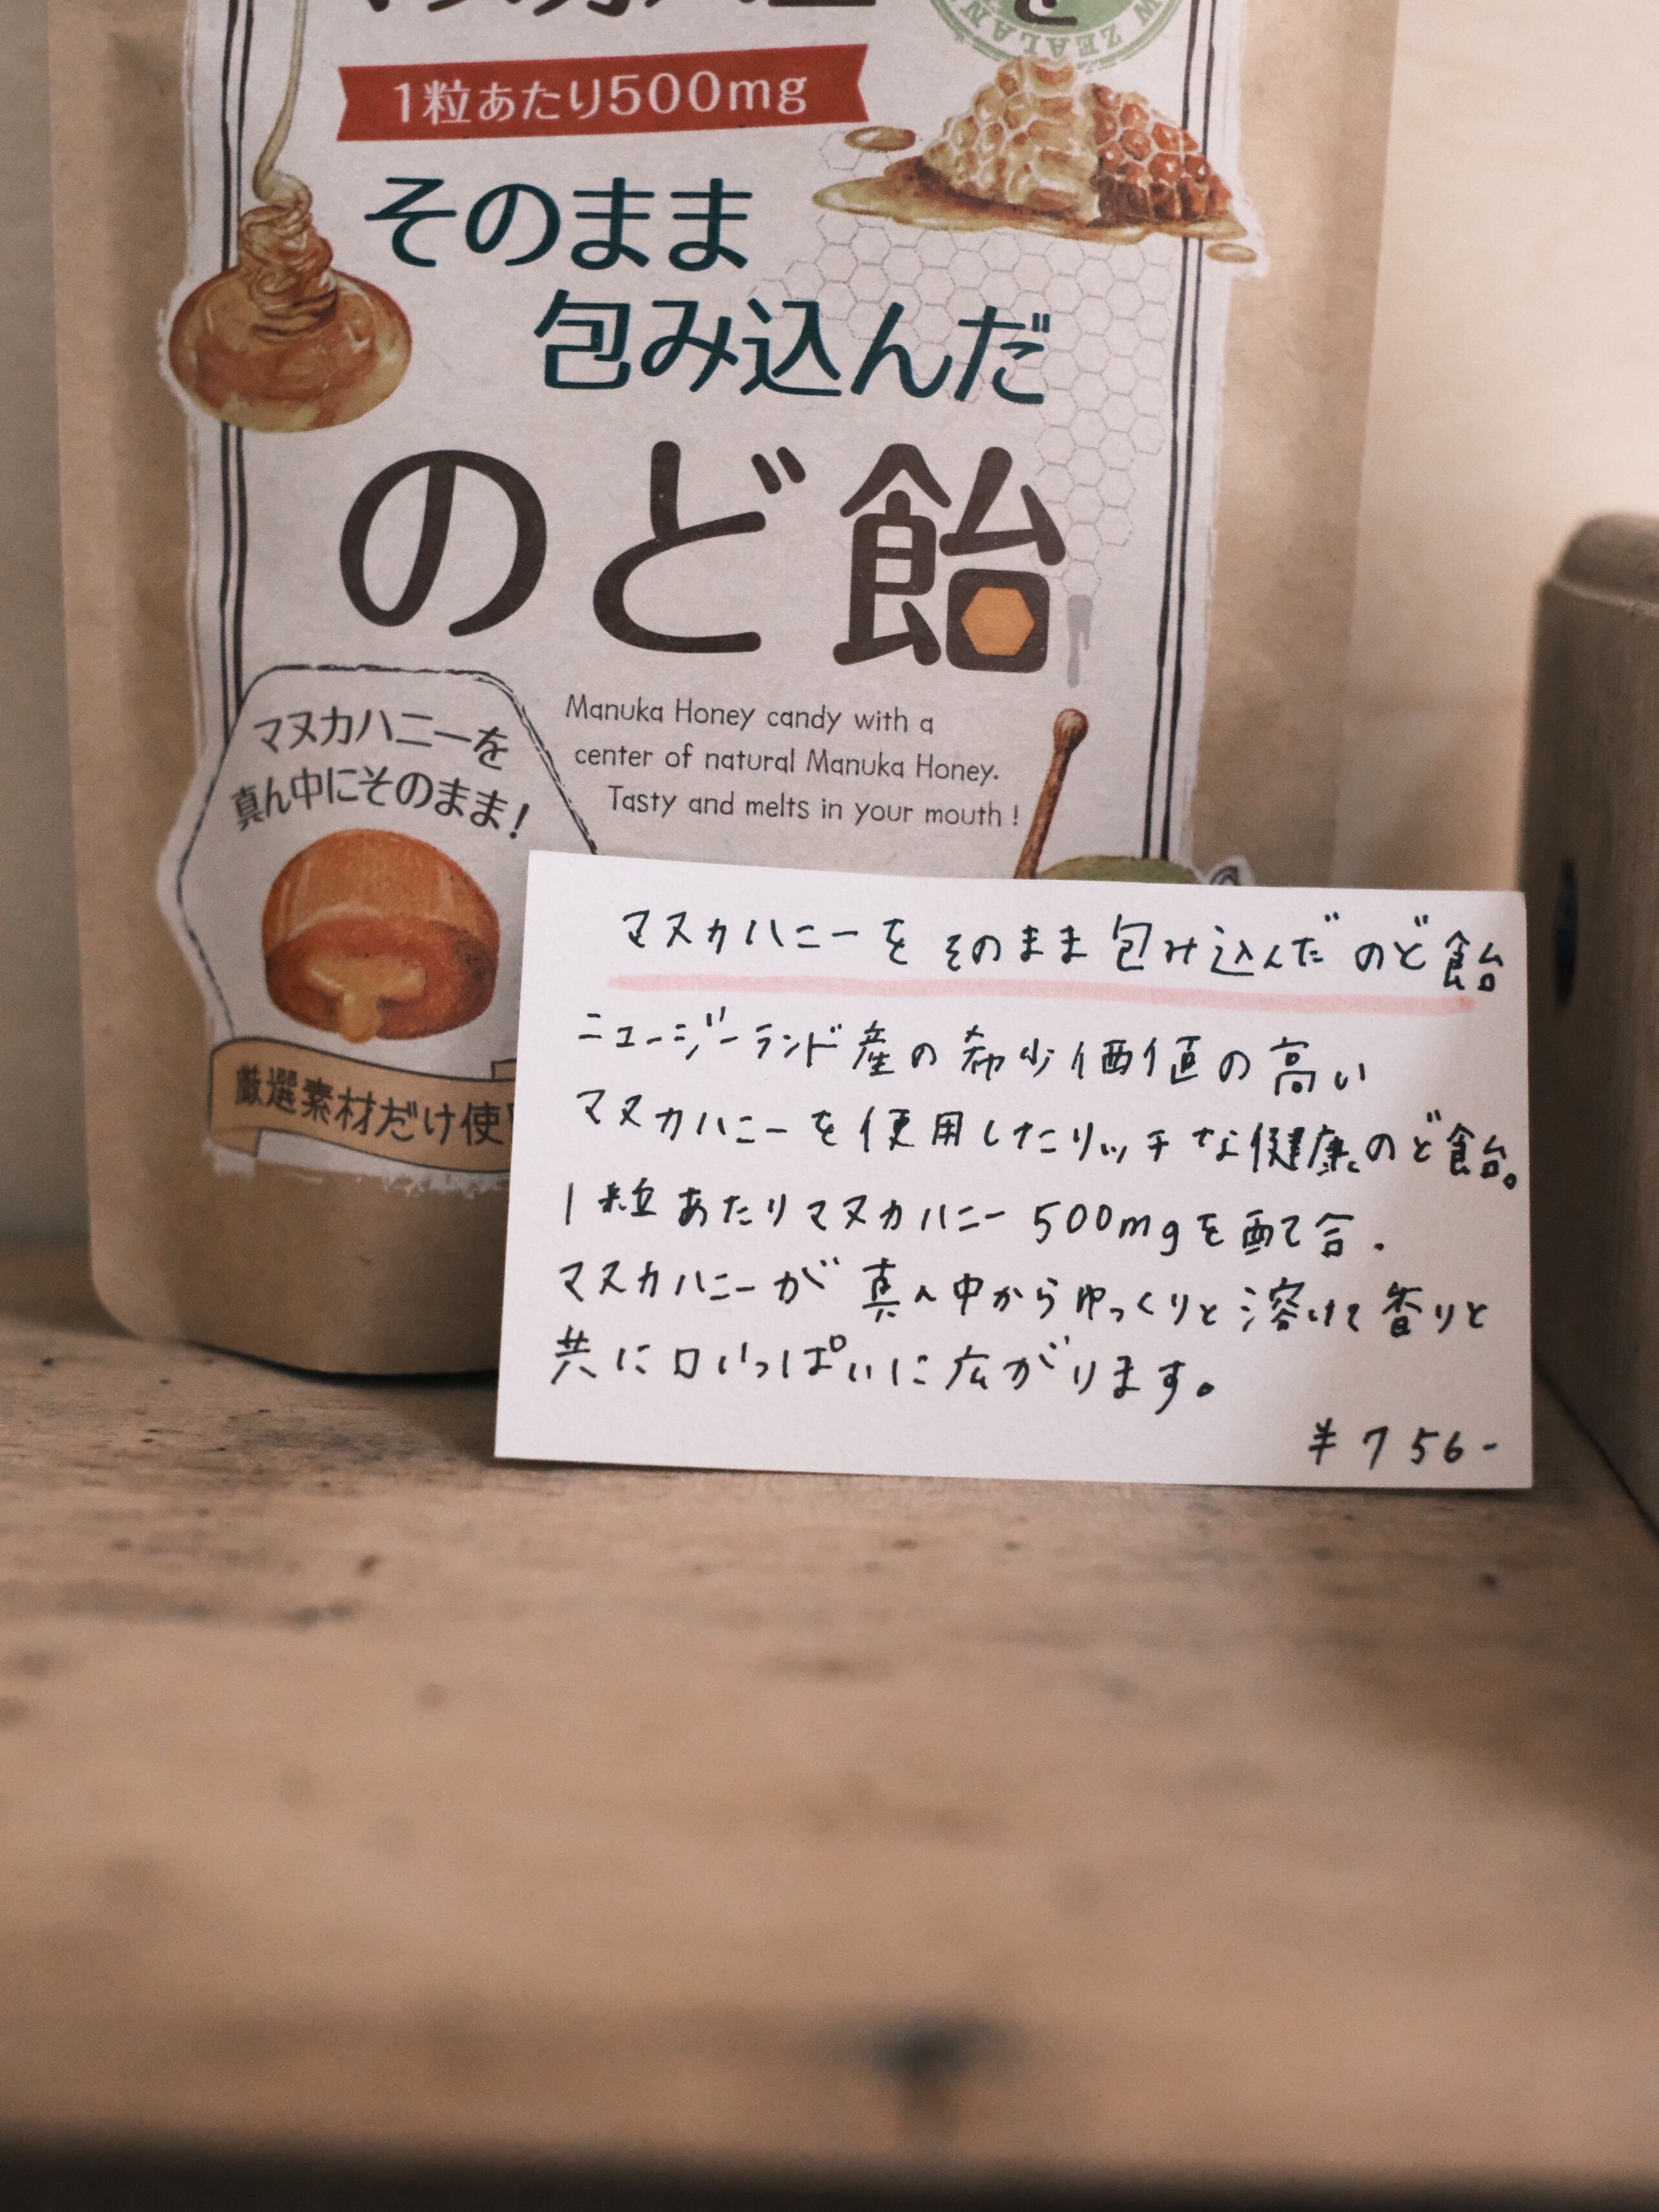 ZEALAN
1粒あたり500mg
そのまま
包み込んだ
のど飴
マヌカハニーを
真ん中にそのまま!
Manuka Honey candy with a
center of natural Manuka Honey.
Tasty and melts in your mouth !
厳選素材だけ使
マヌカハニーをそのまま包み込んだのど飴
ニュージーランド産の希少価値の高い
マヌカハニーを使用したリッチな健康のど飴。
1粒あたりマヌカハニー500mgを配合.
マヌカハニーが真ん中からゆっくりと溶けて香りと
共に口いっぱいに広がります。
¥756-